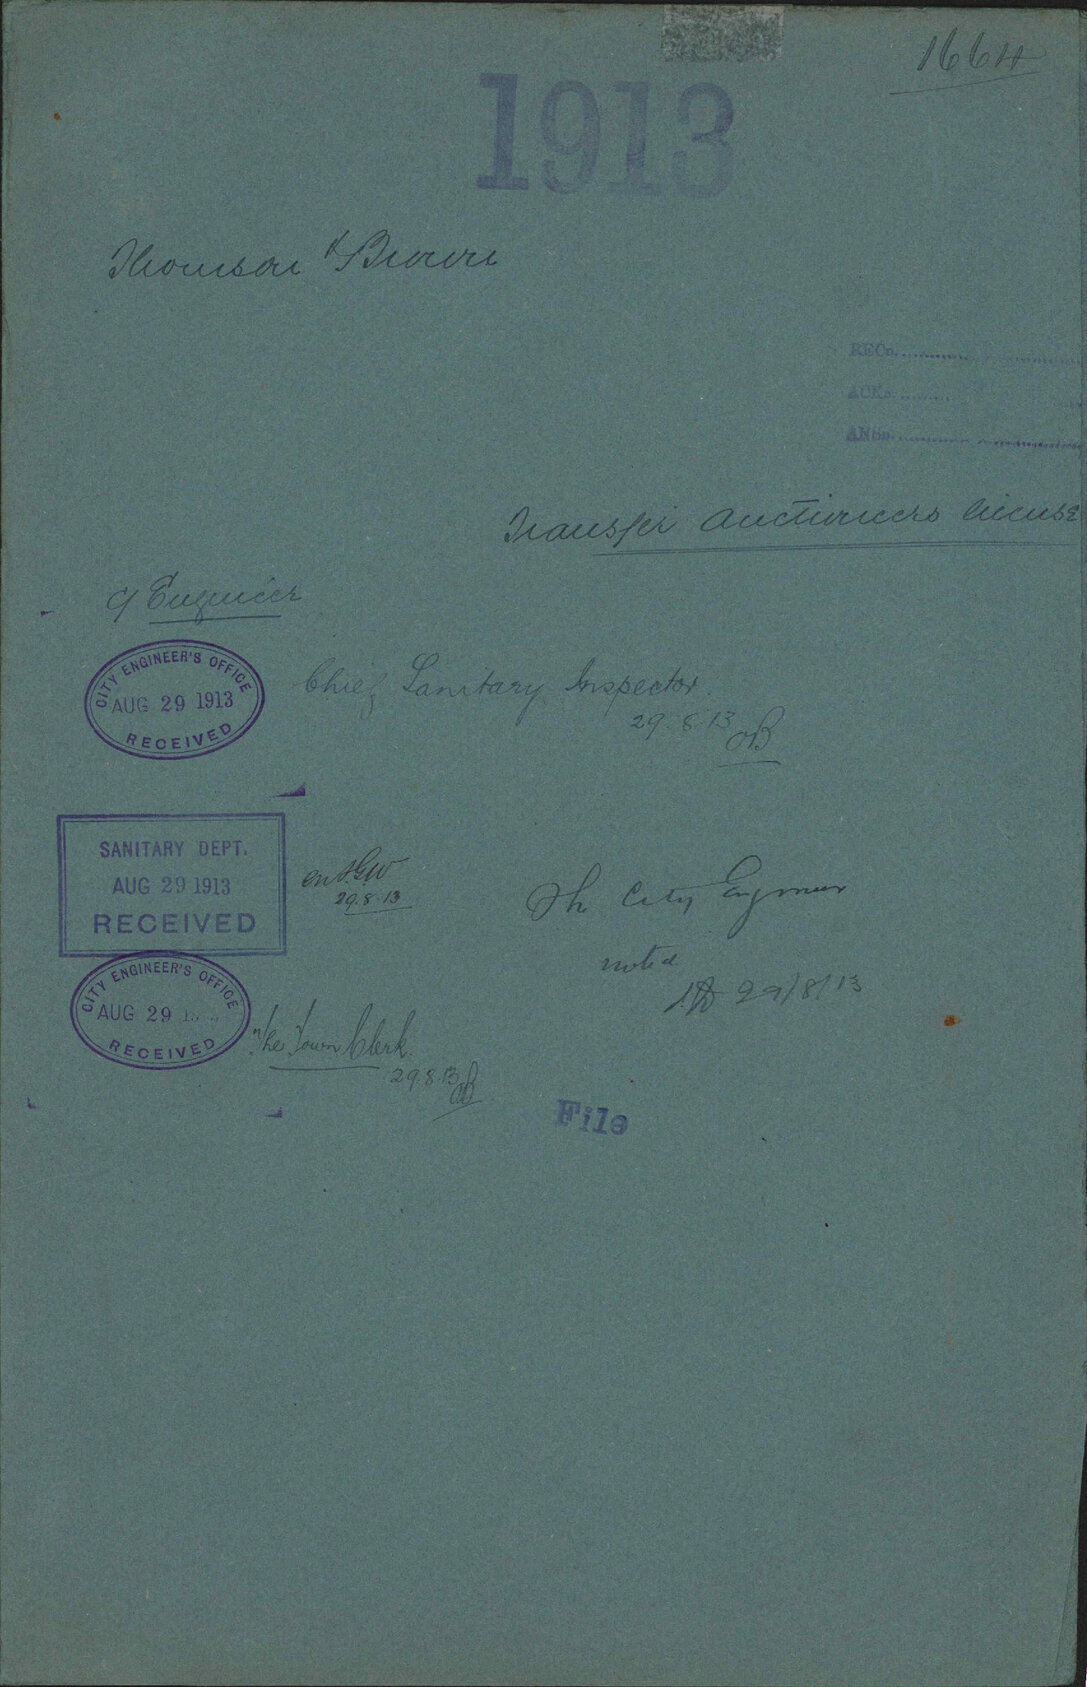 1664
1913
Thomson & Brown
RECD.
ACKD.
ANSD.
Transfer Auctioneers license
C/ Engineer
CITY ENGINEER'S OFFICE
AUG 29 1913
RECEIVED
Chief Sanitary Inspector.
29.8.13
SANITARY DEPT.
AUG 29 1913
RECEIVED
29.8.13
The City Engineer
noted
29/8/13
CITY ENGINEER'S OFFICE
AUG 29
RECEIVED
The Town Clerk.
29.8.13
File